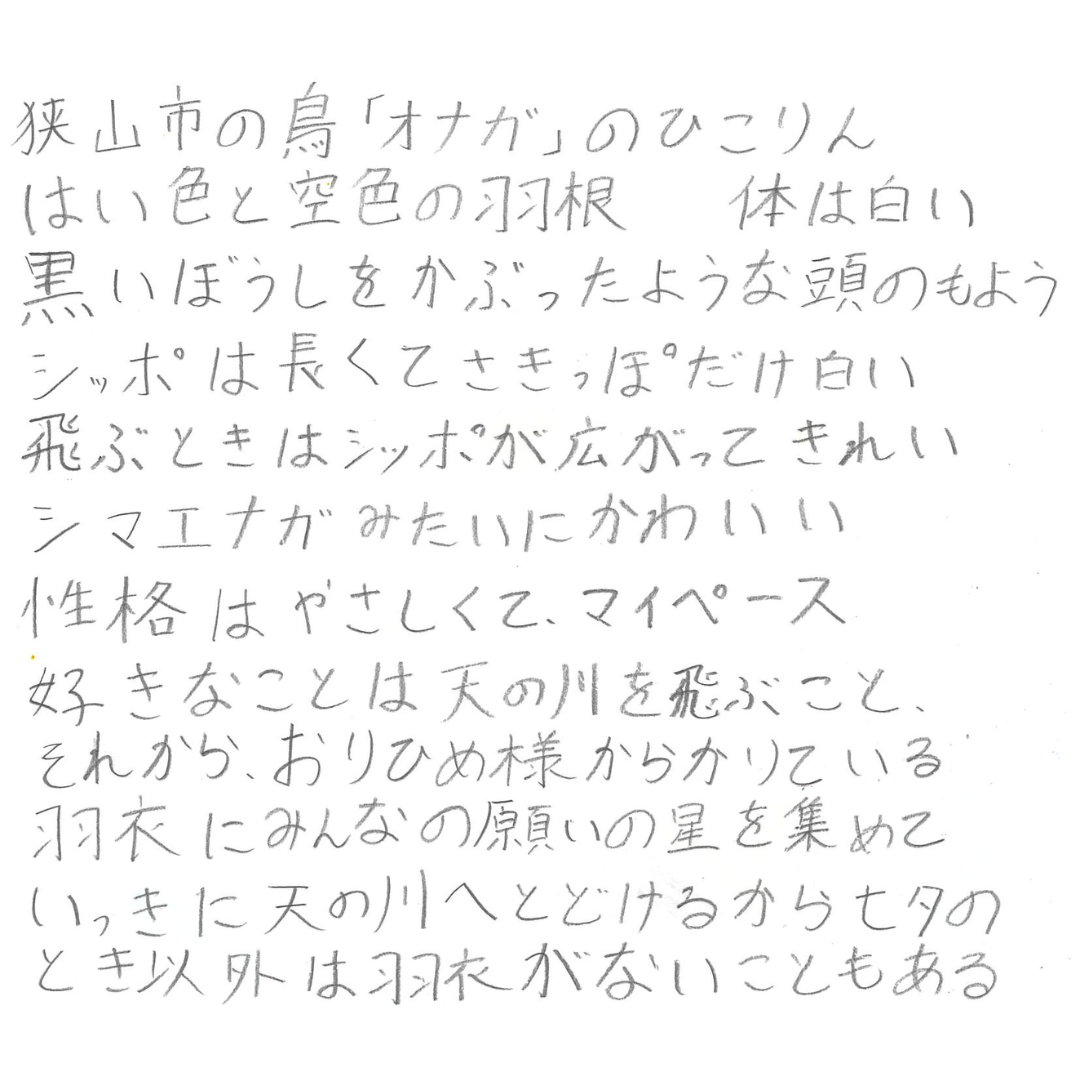 狭山市の鳥「オナガ」のひこりん
はい色と空色の羽根　　体は白い
黒いぼうしをかぶったような頭のもよう
シッポは長くてさきっぽだけ白い
飛ぶときはシッポが広がってきれい
シマエナガみたいにかわいい
性格はやさしくて、マイペース
好きなことは天の川を飛ぶこと、
それから、おりひめ様からかりている
羽衣にみんなの願いの星を集めて
いっきに天の川へとどけるから七夕の
とき以外は羽衣がないこともある